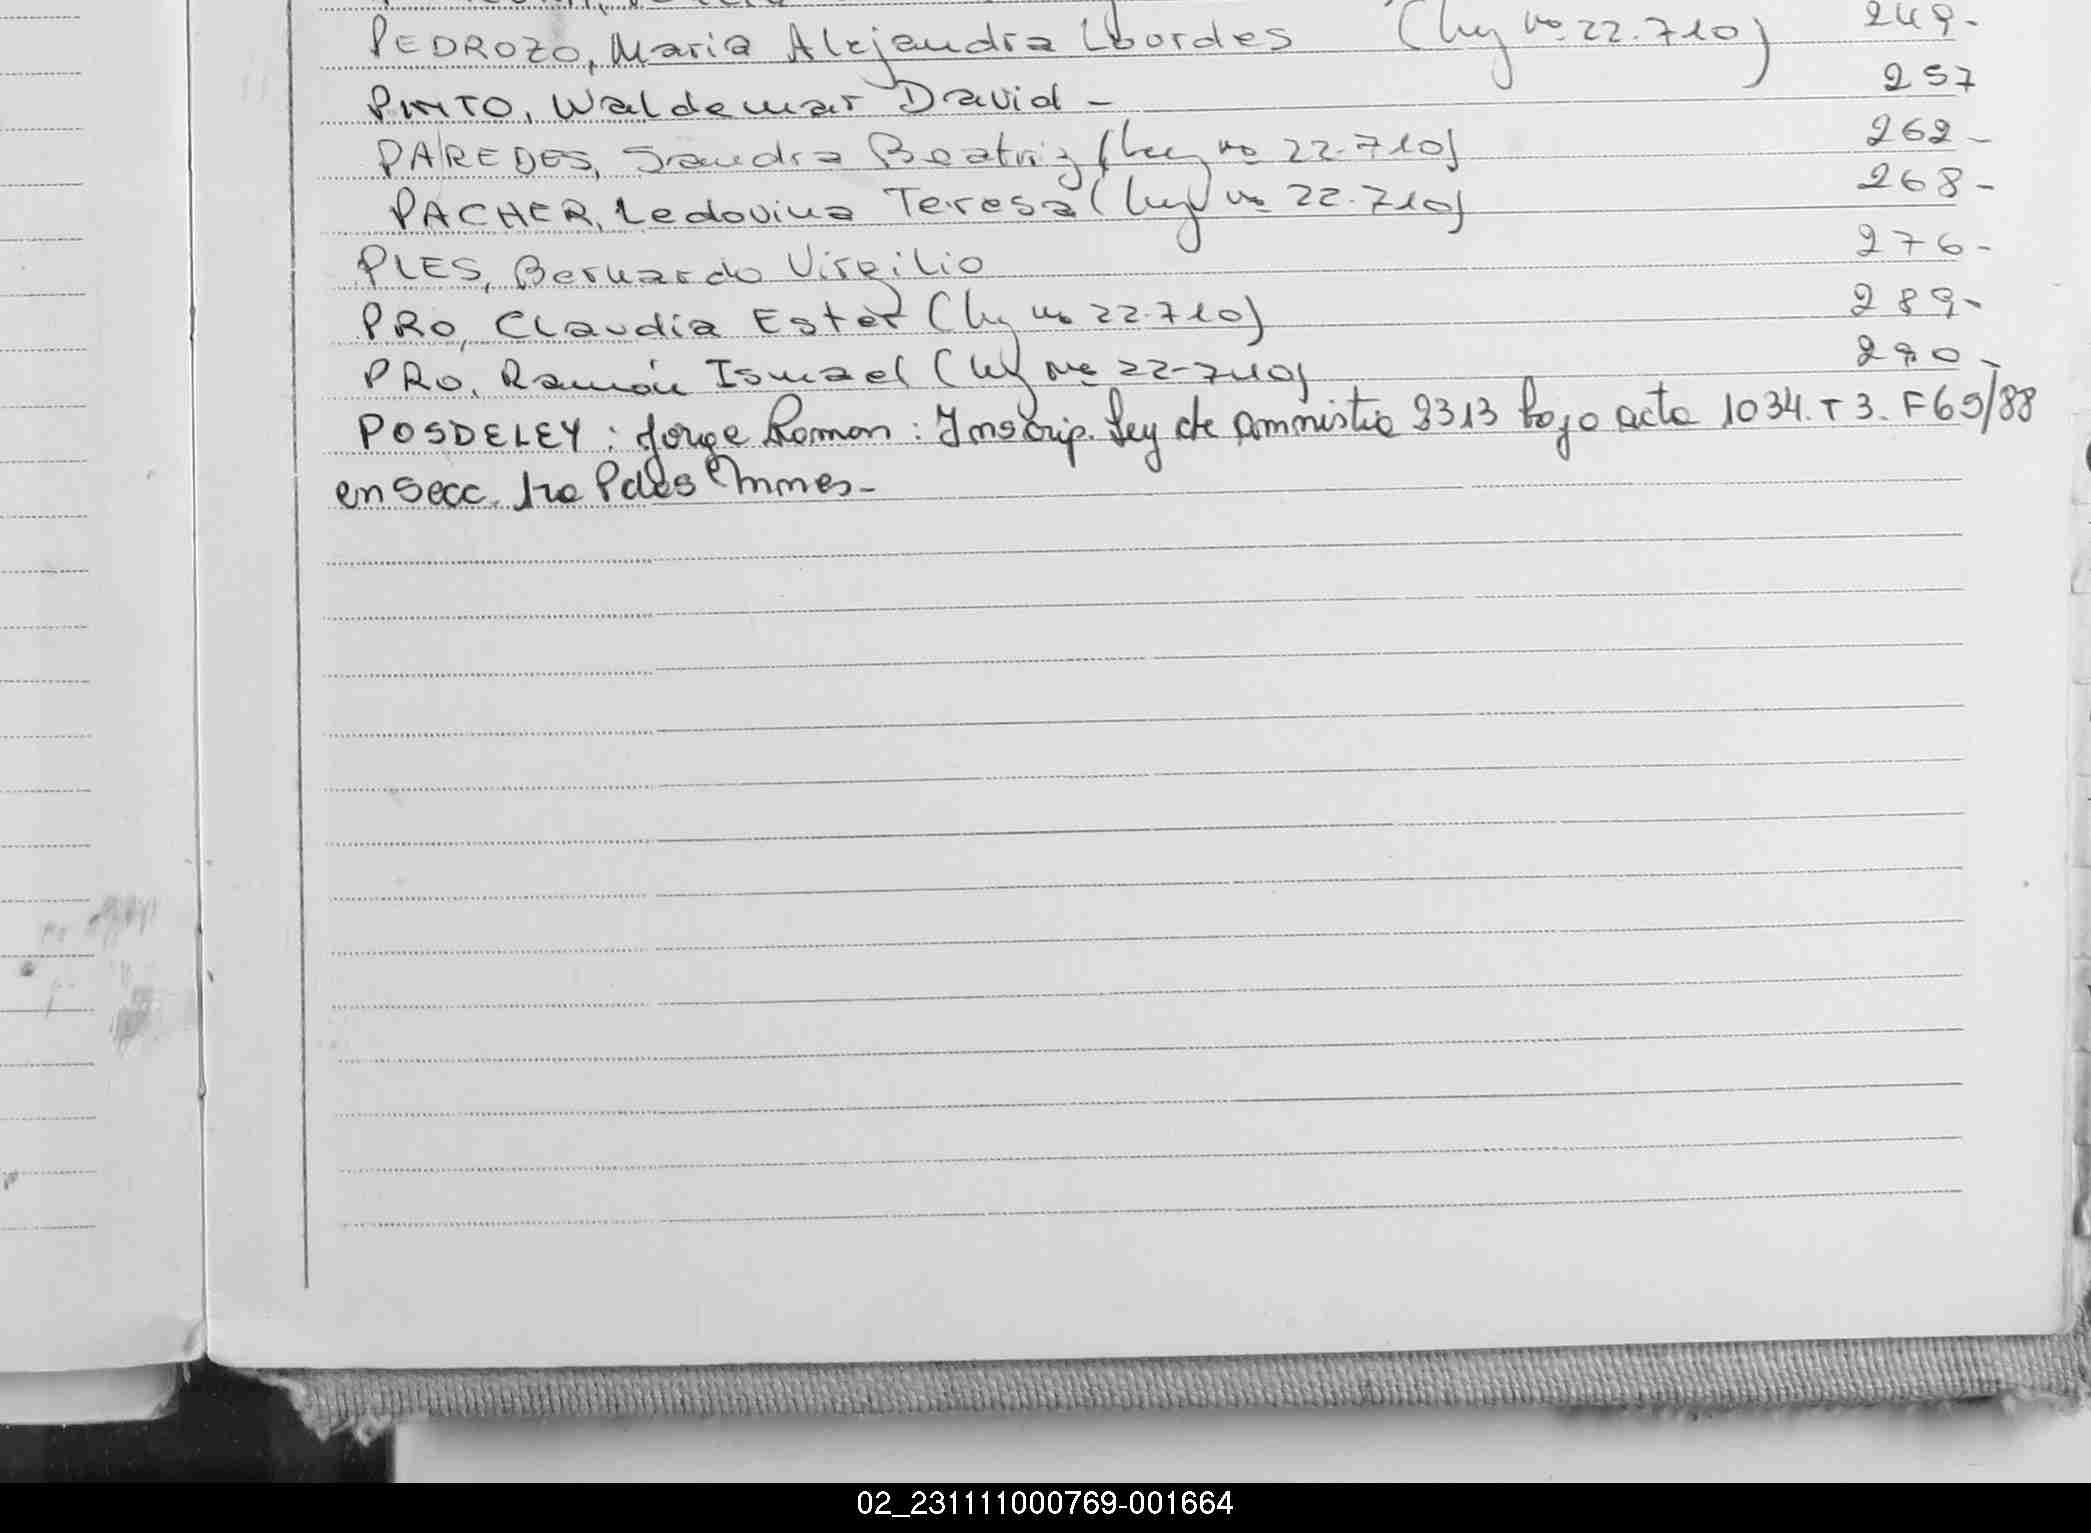 PEDROZO, Maria Alejandra Lourdes (Ley no 22.710) 249-
PINTO, Waldemar David - 257
PAREDES, Sandra Beatriz (Ley no 22.710) 262-
PACHER, Ledovina Teresa (Ley no 22.710) 268-
PLES, Bernardo Virgilio 276-
PRO, Claudia Ester (Ley no 22.710) 289-
PRO, Ramón Ismael (Ley no 22-710) 290-
POSDELEY: Jorge Roman: Inscrip. Ley de amnistia 2313 bajo acta 1034. T 3. F 69/88
en Secc. 1ra Pdas
02_231111000769-001664